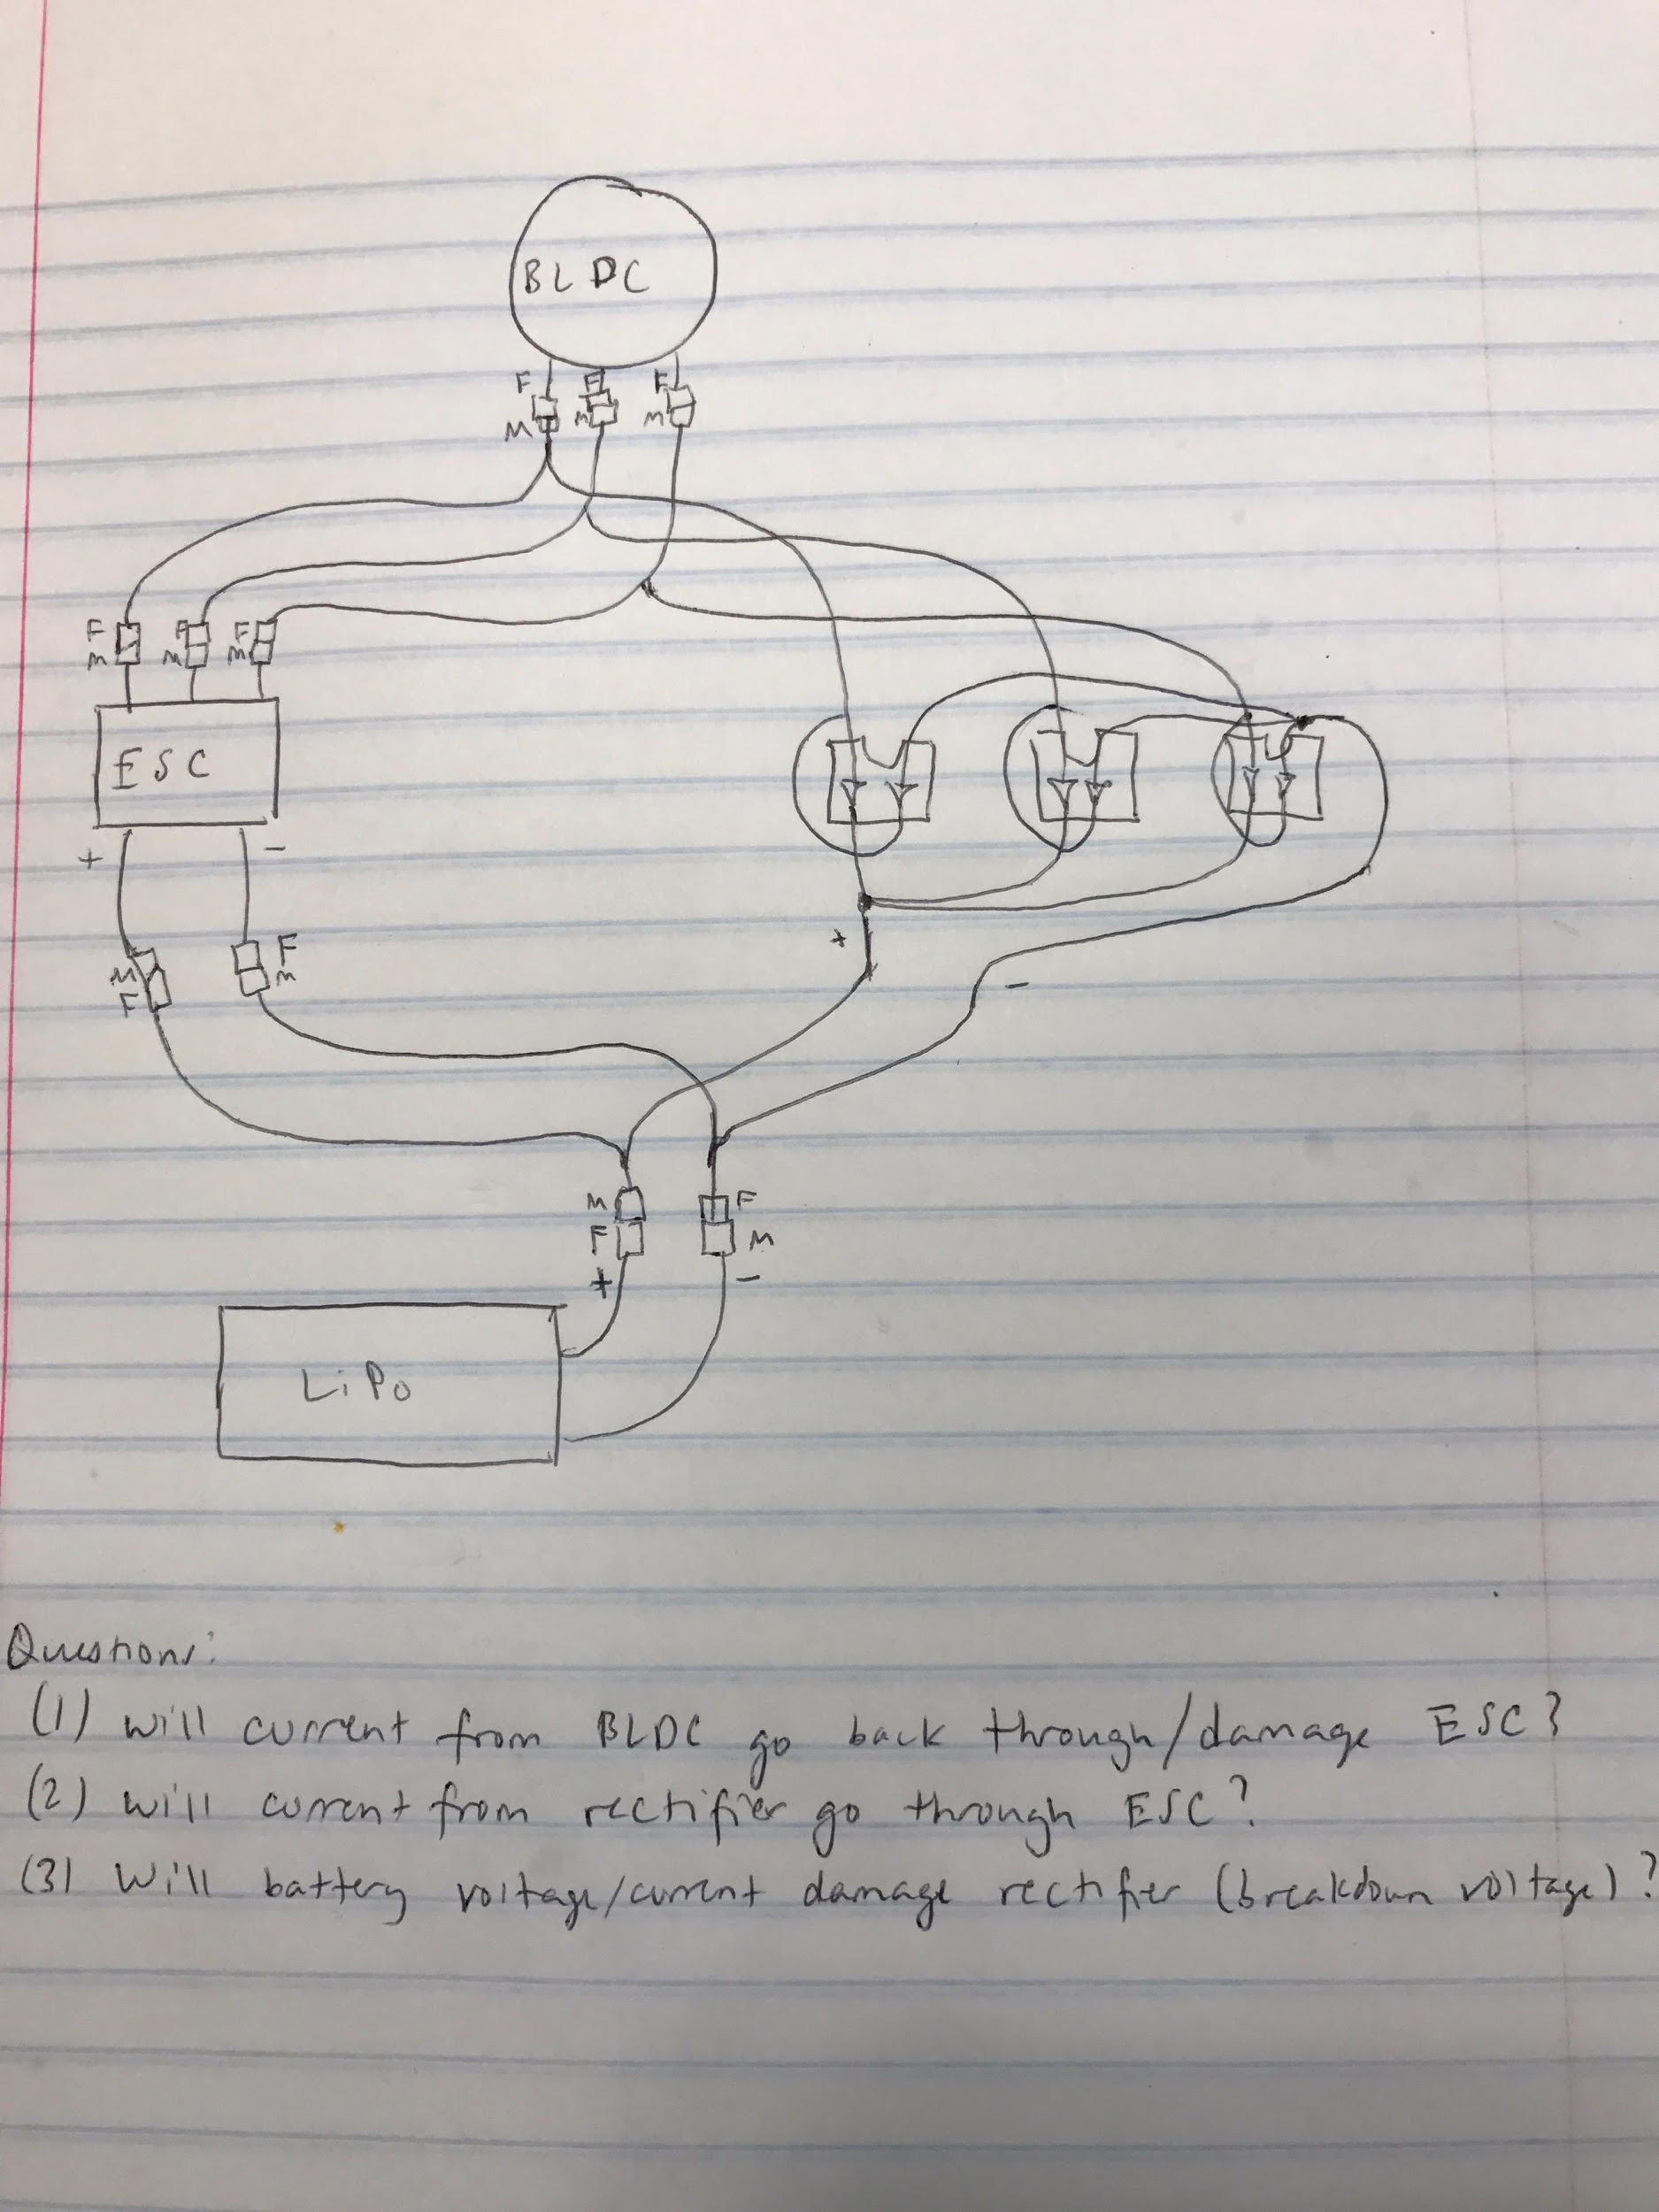 BLDC
F F F
M M M
F F F
M M M
ESC
+ -
M F
F M
+
-
M F
F M
+ -
LiPo
Questions:
(1) will current from BLDC go back through/damage ESC?
(2) will current from rectifier go through ESC?
(3) Will battery voltage/current damage rectifier (breakdown voltage)?